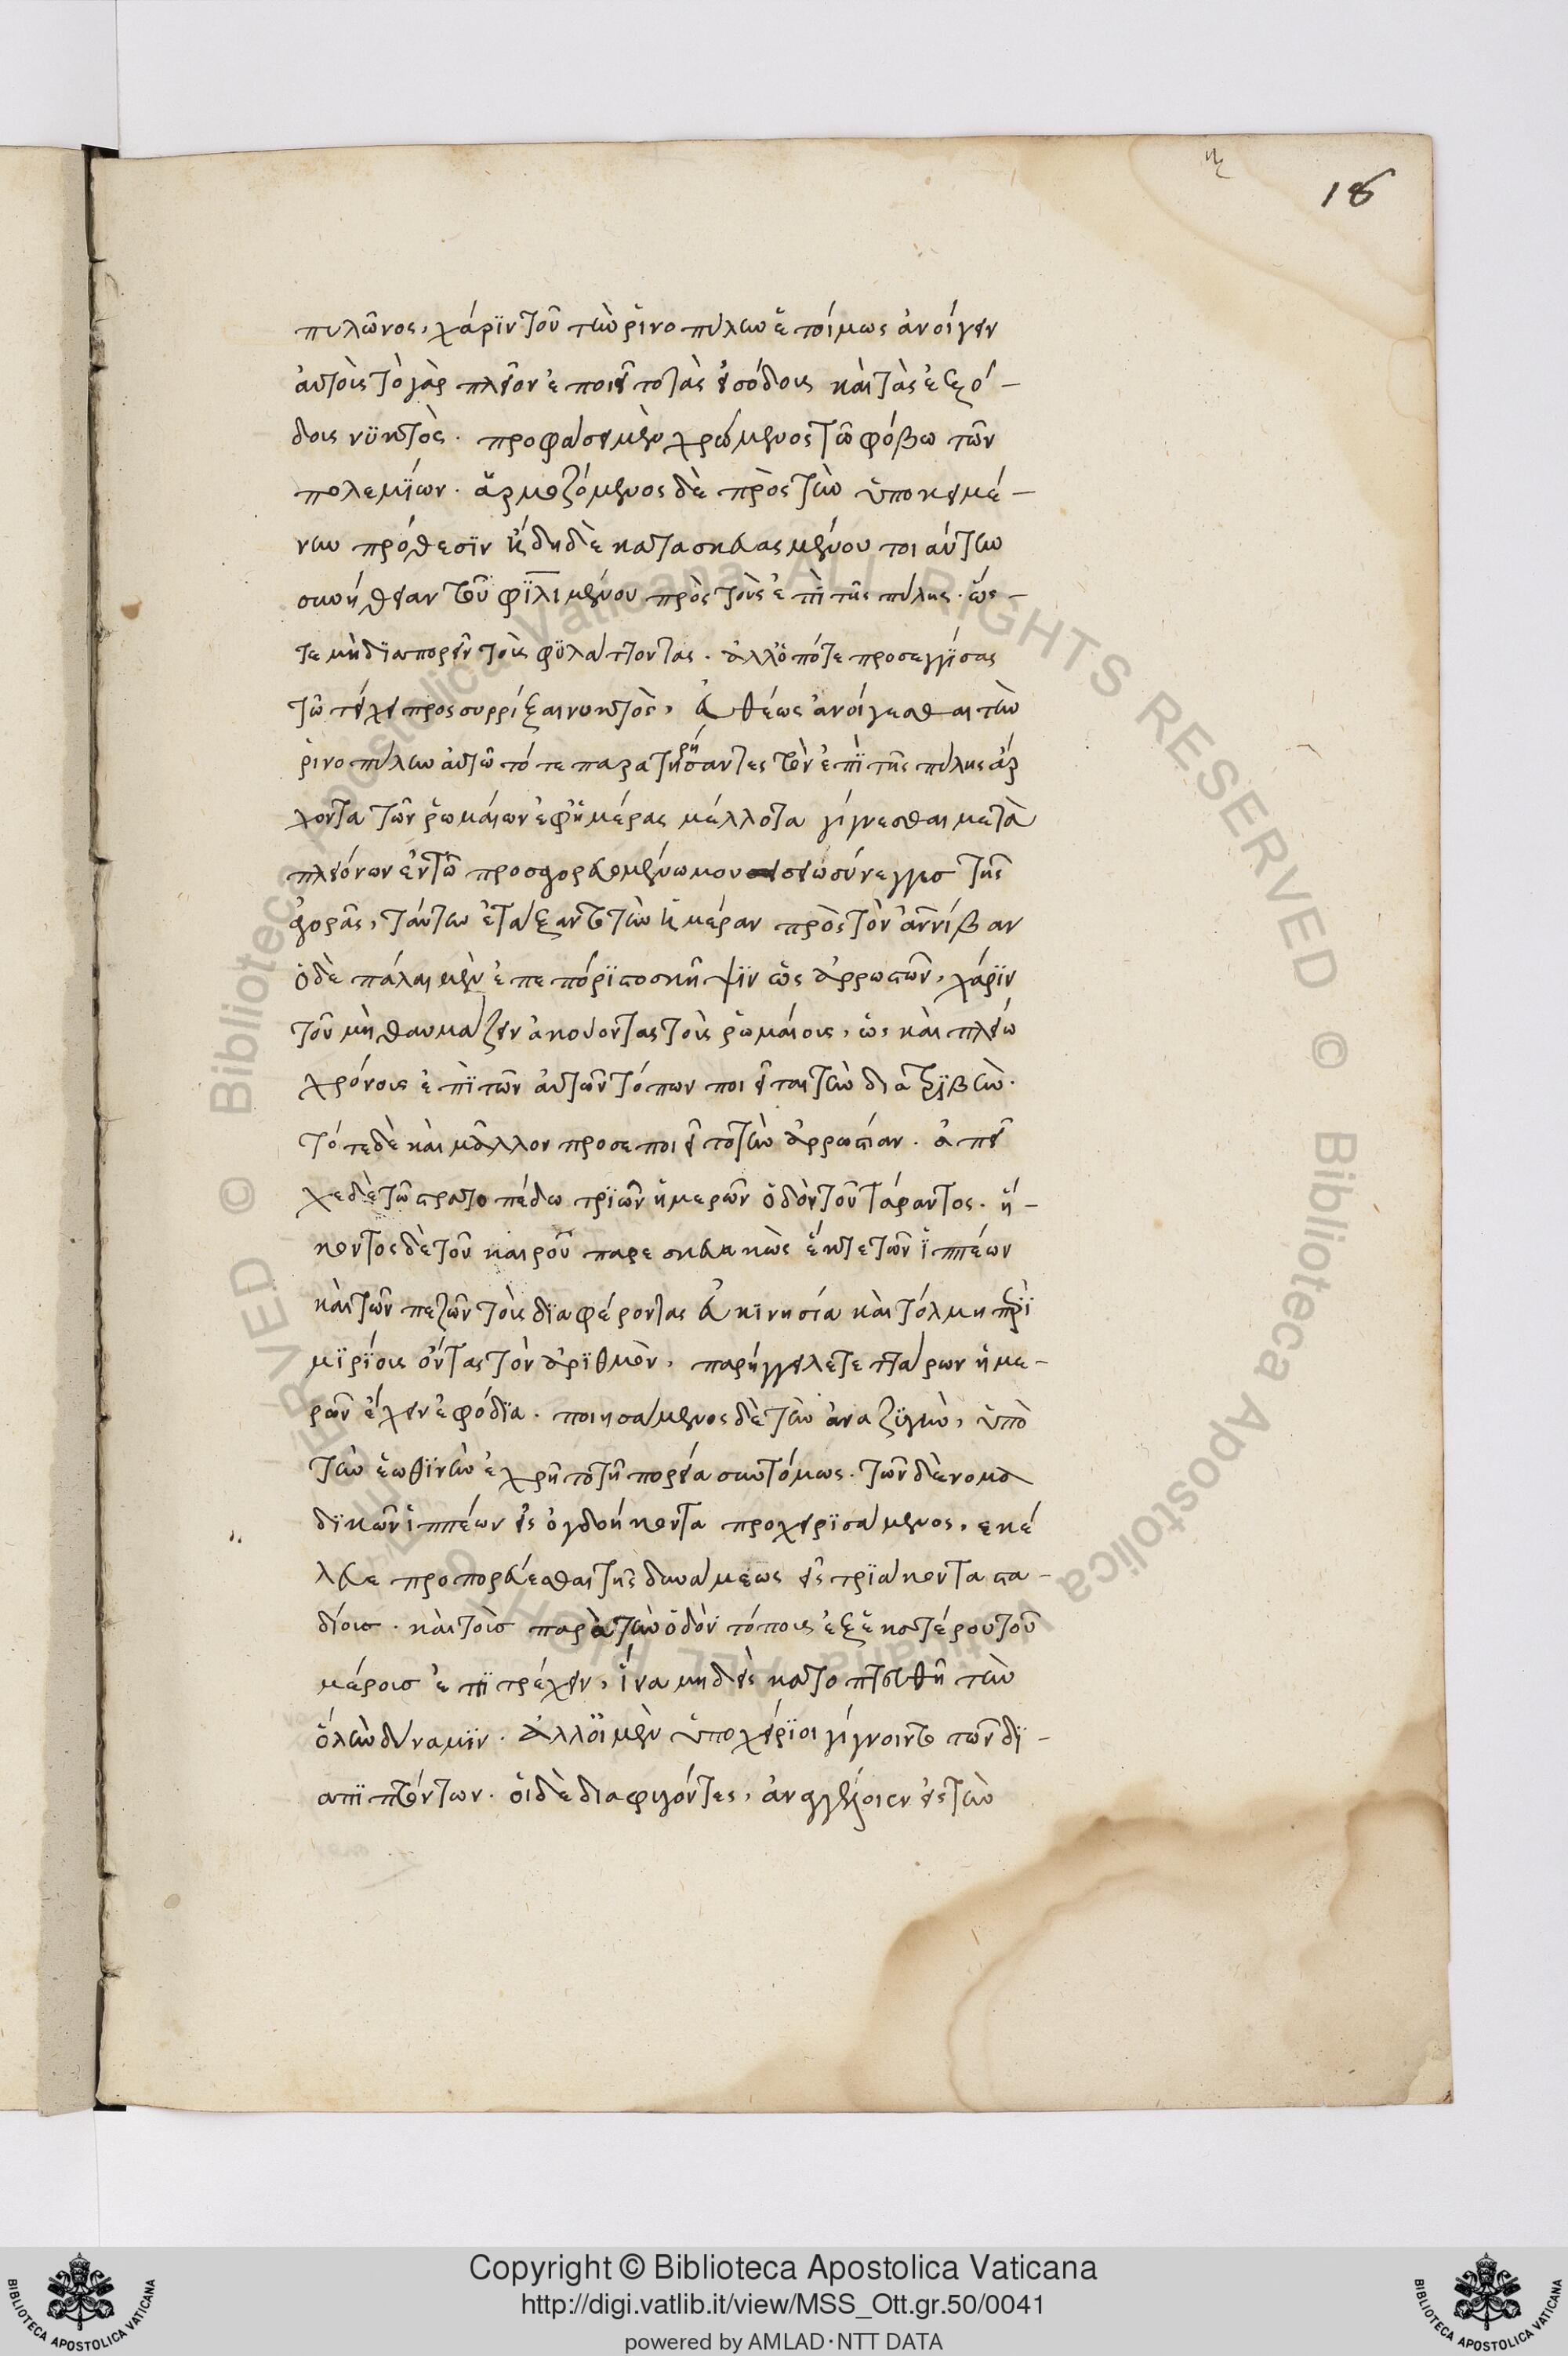 ιζ
18
πυλῶνος, χάριν τοῦ τὴν ῥινοπύλην ἑτοίμως ἀνοίγειν
αὐτοῖς τὸ γὰρ πλεῖον ἐποιεῖτο τὰς εἰσόδους καὶ τὰς ἐξό-
δους νϋκτὸς. προφάσει μὲν χρώμενος τῶ φόβω τῶν
πολεμΐων. ἁρμοζόμενος δὲ πρὸς τὴν ὑποκειμέ-
νην πρόθεσϊν ἤδη δὲ κατασκευασμένου τοιαύτην
συνήθειαν τοῦ φϊλιμένου πρὸς τοὺς ἐπὶ τῆς πύλης. ὥς-
τε μὴ διαπορεῖν τοὺς φϋλάττοντας. ἀλλ' ὁπότε προσεγγίσας
τῶ τείχει προςσυρρίξαι νυκτὸς, εὐθέως ἀνοίγεσθαι τὴν
ῥινοπύλην αὐτῶ τό τε παρατηρήσαντες τὸν ἐπὶ τῆς πύλης ἄρ
χοντα τῶν ῥωμαίων ἐφ' ἡμέρας μέλλοντα γίγνεσθαι μετὰ
πλειόνων ἐν τῶ προσαγορευομένω μουσείω σύνεγγυς τῆς
ἀγορᾶς, ταύτην ἐτάξαντο τὴν ἡμέραν πρὸς τὸν ἀννίβαν
ὁ δὲ πάλαι μὲν ἐπεπόριστο σκῆψϊν ὡς ἀρρωστῶν, χάρϊν
τοῦ μὴ θαυμάζειν ἀκούοντας τοὺς ῥωμαίους, ὡς καὶ πλείω
χρόνους ἐπὶ τῶν αὐτῶν τόπων ποιεῖται τὴν διατρϊβὴν.
τότε δὲ καὶ μᾶλλον προσεποιεῖτο τὴν ἀρρωστίαν. ἀπεῖ
χε δὲ τῶ στρατοπέδω τρϊῶν ἡμερῶν ὁδὸν τοῦ τάραντος. ἥ-
κοντος δὲ τοῦ καιροῦ παρεσκευακὼς ἔκ τε τῶν ἱππέων
καὶ τῶν πεζῶν τοὺς διαφέροντας εὐκϊνησία καὶ τόλμη πρὶ
μϊρίους ὄντας τὸν ἀρϊθμὸν, παρήγγειλε τεττάρων ἡμε-
ρῶν ἔχειν ἐφόδϊα. ποιησάμενος δὲ τὴν ἀναζϋγὴν, ὑπὸ
τὴν ἑωθϊνὴν ἐχρῆτο τῆ πορεία συντόμως. τῶν δὲ νομα
δϊκῶν ἱππέων εἰς ὀγδοήκοντα προχειρϊσάμενος, ἐκέ
λευε προπορεύεσθαι τῆς δυνάμεως εἰς τρϊάκοντα στα-
δίους. καὶ τοὺς παρὰ τὴν ὁδὸν τόπους ἐξ ἑκατέρου τοῦ
μέρους ἐπιτρέχειν, ἵνα μηδεὶς κατοπτευθῆ τὴν
ὅλην δύναμϊν. ἀλλ' οἱ μὲν ὑποχείρϊοι γίγνοιντο τῶν δϊ-
απιπτόντων. οἱ δὲ διαφυγόντες, ἀναγγέλοιεν εἰς τὴν
Copyright © Biblioteca Apostolica Vaticana
http://digi.vatlib.it/view/MSS_Ott.gr.50/0041
powered by AMLAD·NTT DATA